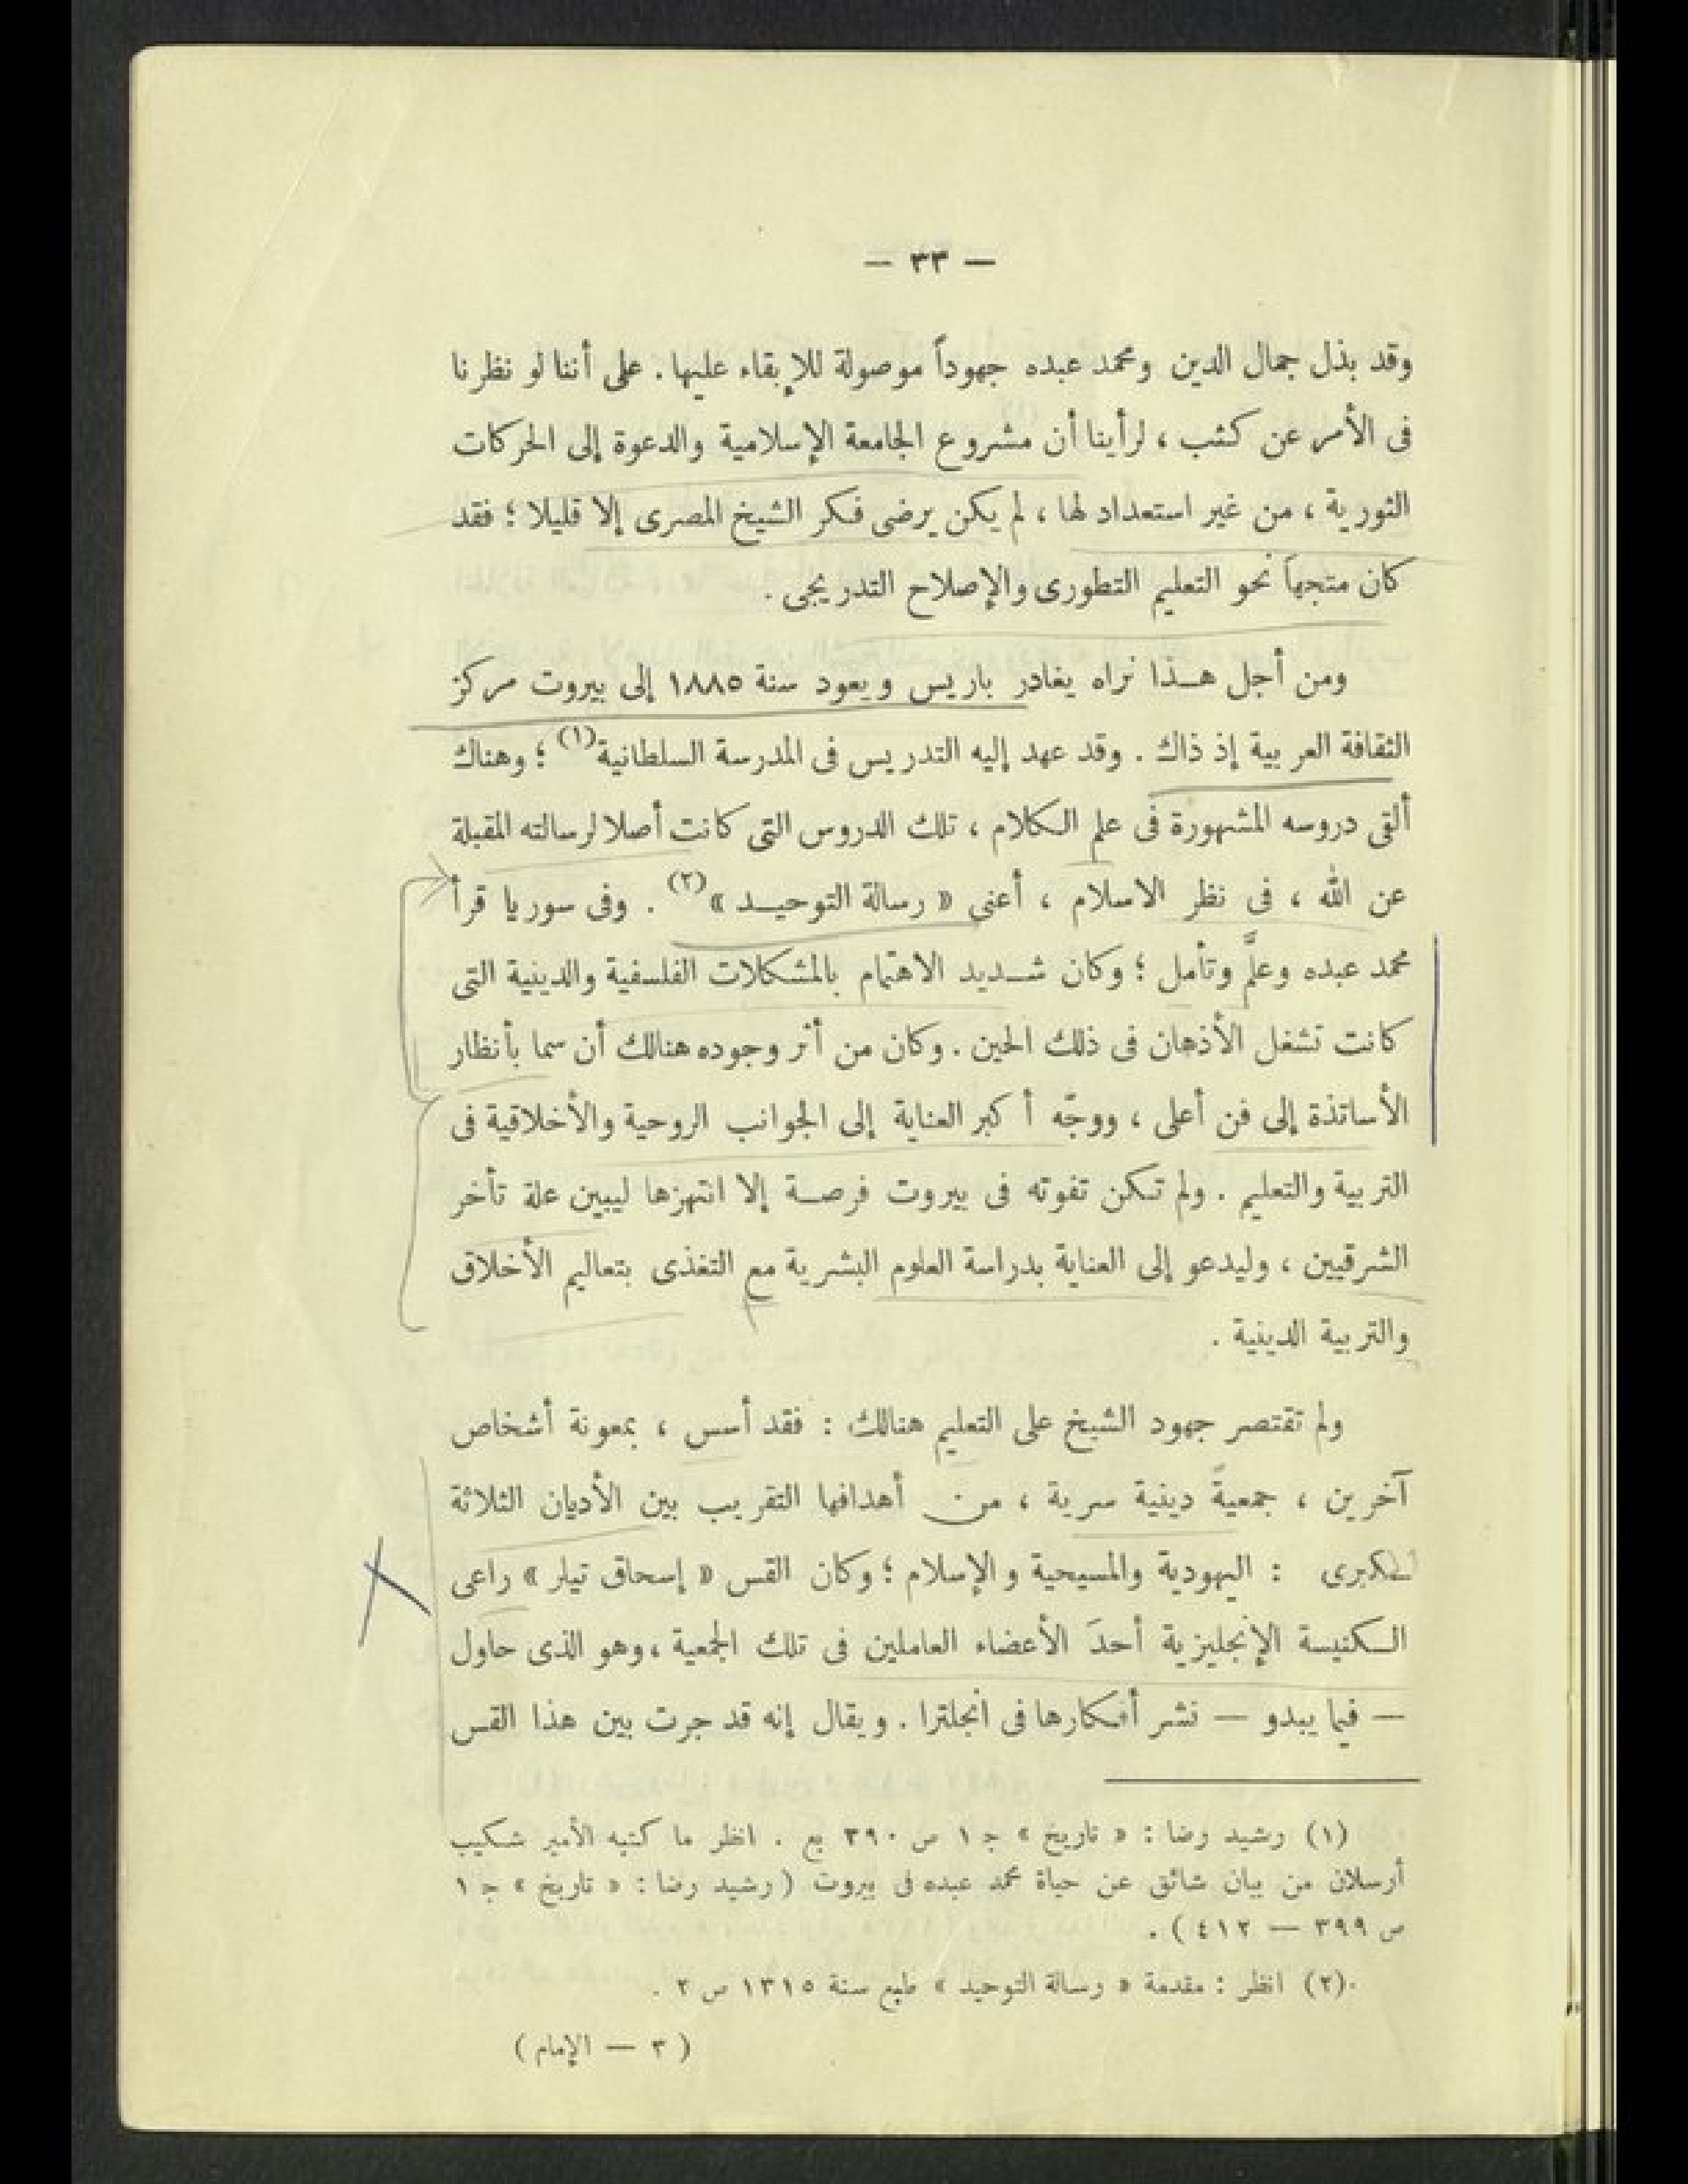 — ٣٣ —
وقد بذل جمال الدين ومحمد عبده جهوداً موصولة للإبقاء عليها. على أننا لو نظرنا
فى الأمر عن كثب ، لرأينا أن مشروع الجامعة الإسلامية والدعوة إلى الحركات
الثورية ، من غير استعداد لها ، لم يكن يرضى فكر الشيخ المصرى إلا قليلا ؛ فقد
كان متجهاً نحو التعليم التطورى والإصلاح التدريجى .
ومن أجل هذا نراه يغادر باريس ويعود سنة ١٨٨٥ إلى بيروت مركز
الثقافة العربية إذ ذاك . وقد عهد إليه التدريس فى المدرسة السلطانية(١) ؛ وهناك
ألقى دروسه المشهورة فى علم الكلام ، تلك الدروس التى كانت أصلا لرسالته المقبلة
عن الله ، فى نظر الاسلام ، أعنى « رسالة التوحيد »(٢) . وفى سوريا قرأ
محمد عبده وعلَّم وتأمل ؛ وكان شديد الاهتمام بالمشكلات الفلسفية والدينية التى
كانت تشغل الأذهان فى ذلك الحين . وكان من أثر وجوده هنالك أن سما بأنظار
الأساتذة إلى فن أعلى ، ووجّه أكبر العناية إلى الجوانب الروحية والأخلاقية فى
التربية والتعليم . ولم تكن تفوته فى بيروت فرصة إلا انتهزها ليبين علة تأخر
الشرقيين ، وليدعو إلى العناية بدراسة العلوم البشرية مع التغذى بتعاليم الأخلاق
والتربية الدينية .
ولم تقتصر جهود الشيخ على التعليم هنالك : فقد أسس ، بمعونة أشخاص
آخرين ، جمعيةً دينية سرية ، من أهدافها التقريب بين الأديان الثلاثة
الكبرى : اليهودية والمسيحية والإسلام ؛ وكان القس « إسحاق تيلر » راعى
الكنيسة الإنجليزية أحدَ الأعضاء العاملين فى تلك الجمعية ، وهو الذى حاول
— فيما يبدو — نشر أفكارها فى انجلترا . ويقال إنه قد جرت بين هذا القس
(١) رشيد رضا : « تاريخ » ج ١ ص ٣٩٠ بع . انظر ما كتبه الأمير شكيب
أرسلان من بيان شائق عن حياة محمد عبده فى بيروت (رشيد رضا : « تاريخ » ج ١
ص ٣٩٩ — ٤١٢ ) .
(٢) انظر : مقدمة « رسالة التوحيد » طبع سنة ١٣١٥ ص ٢ .
( ٣ — الإمام )